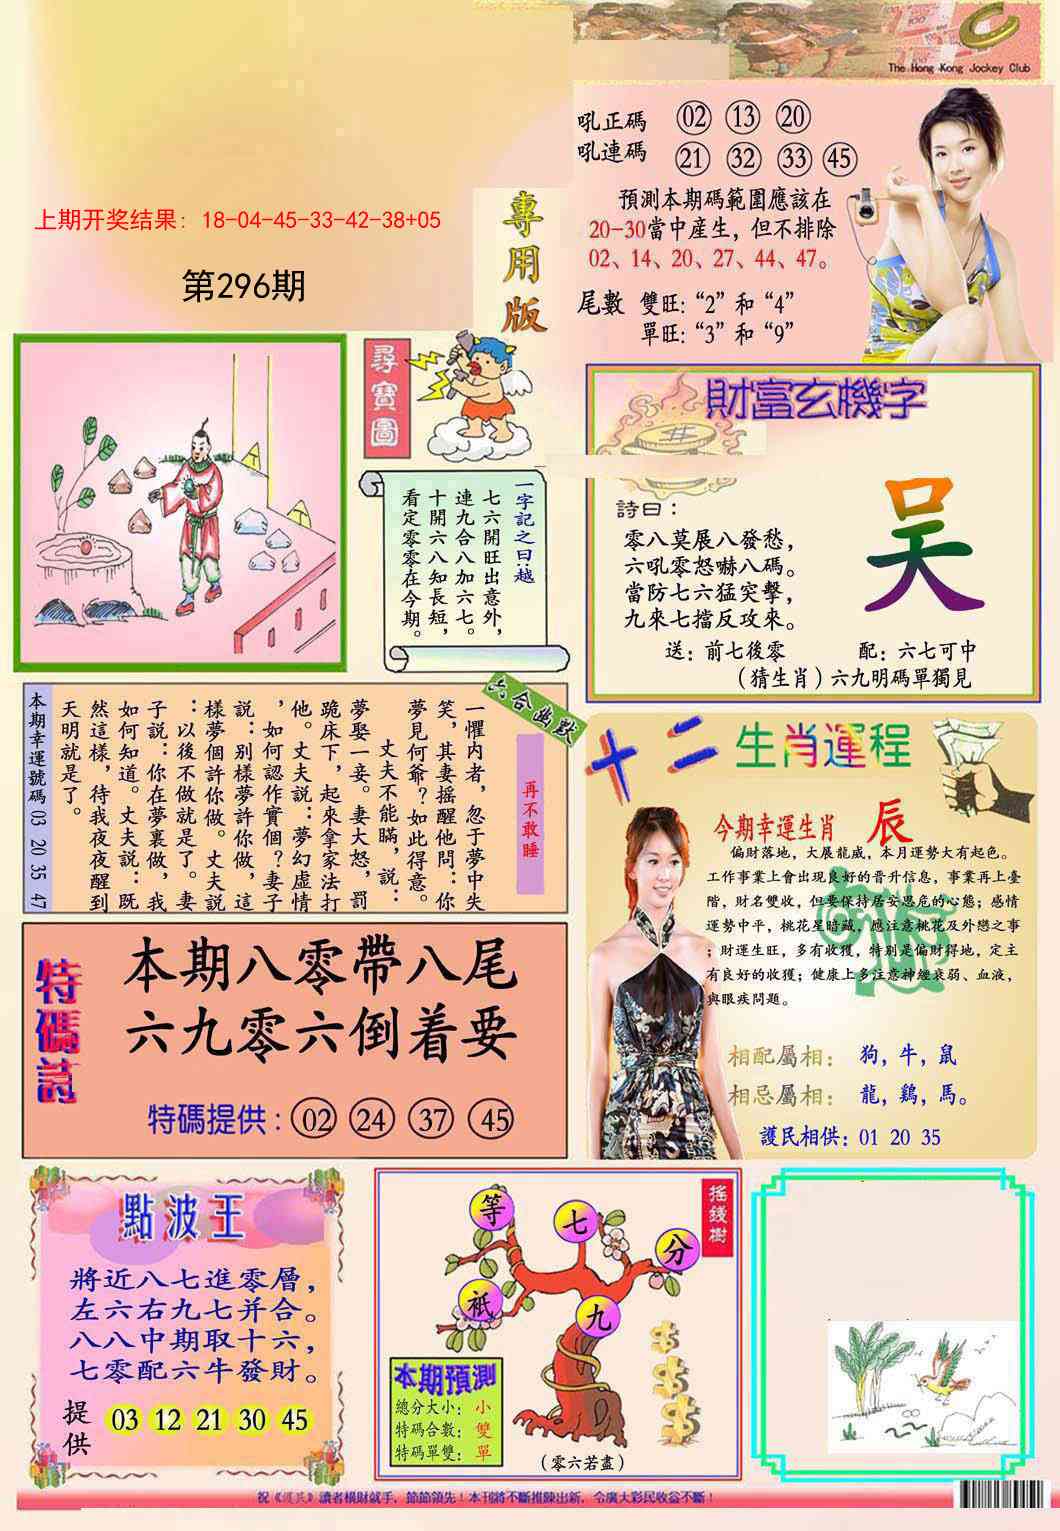 The Hong Kong Jockey Club
上期开奖结果：18-04-45-33-42-38+05
第296期
專用版
吼正碼 02 13 20
吼連碼 21 32 33 45
預測本期碼範圍應該在
20-30當中産生，但不排除
02、14、20、27、44、47。
尾數 雙旺:“2”和“4”
單旺:“3”和“9”
尋寶圖
一字記之曰:越
七六開旺出意外，
連九合八加六七。
十開六八知長短，
看定零零在今期。
財富玄機字
詩曰：
零八莫展八發愁，
六吼零怒嚇八碼。
當防七六猛突擊，
九來七擋反攻來。
吴
送：前七後零 配：六七可中
（猜生肖）六九明碼單獨見
六合幽默
再不敢睡
一懼内者，忽于夢中失
笑，其妻摇醒他問：你
夢見何爺？如此得意。
丈夫不能瞞，説：
夢娶一妾。妻大怒，罰
跪床下，起來拿家法打
他。丈夫説：夢幻虚情
，如何認作實個？妻子
説：别樣夢許你做，這
樣夢個許你做。丈夫説
：以後不做就是了。妻
子説：你在夢裏做，我
如何知道。丈夫説：既
然這樣，待我夜夜醒到
天明就是了。
本期幸運號碼 03 20 35 47
十二生肖運程
今期幸運生肖 辰
偏財落地，大展龍威，本月運勢大有起色。
工作事業上會出現良好的晉升信息，事業再上臺
階，財名雙收，但要保持居安思危的心態；感情
運勢中平，桃花星暗藏，應注意桃花及外戀之事
；財運生旺，多有收獲，特别是偏財得地，定主
有良好的收獲；健康上多注意神經衰弱、血液，
與眼疾問題。
相配屬相：狗，牛，鼠
相忌屬相：龍，鷄，馬。
護民相供：01 20 35
特碼詩
本期八零帶八尾
六九零六倒着要
特碼提供：02 24 37 45
點波王
將近八七進零層，
左六右九七并合。
八八中期取十六，
七零配六牛發財。
提供 03 12 21 30 45
搖錢樹
等
七
分
衹
九
本期預測
總分大小：小
特碼合數：雙
特碼單雙：單
（零六若盡）
祝《護民》讀者横財就手，節節領先！本刊將不斷推陳出新，令廣大彩民收益不斷！